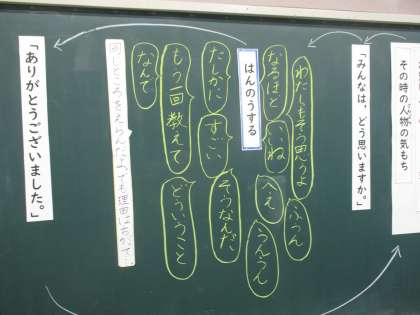 その時の人物の気もち
「みんなは、どう思いますか。」
わたしもそう思うよ
ふうん
なるほど
いいね
へぇ
うんうん
はんのうする
たしかに
すごい
そうなんだ
もう一回教えて
どういうこと
なんて
同じところをえらんだ人でも理由はちがって…
「ありがとうございました。」